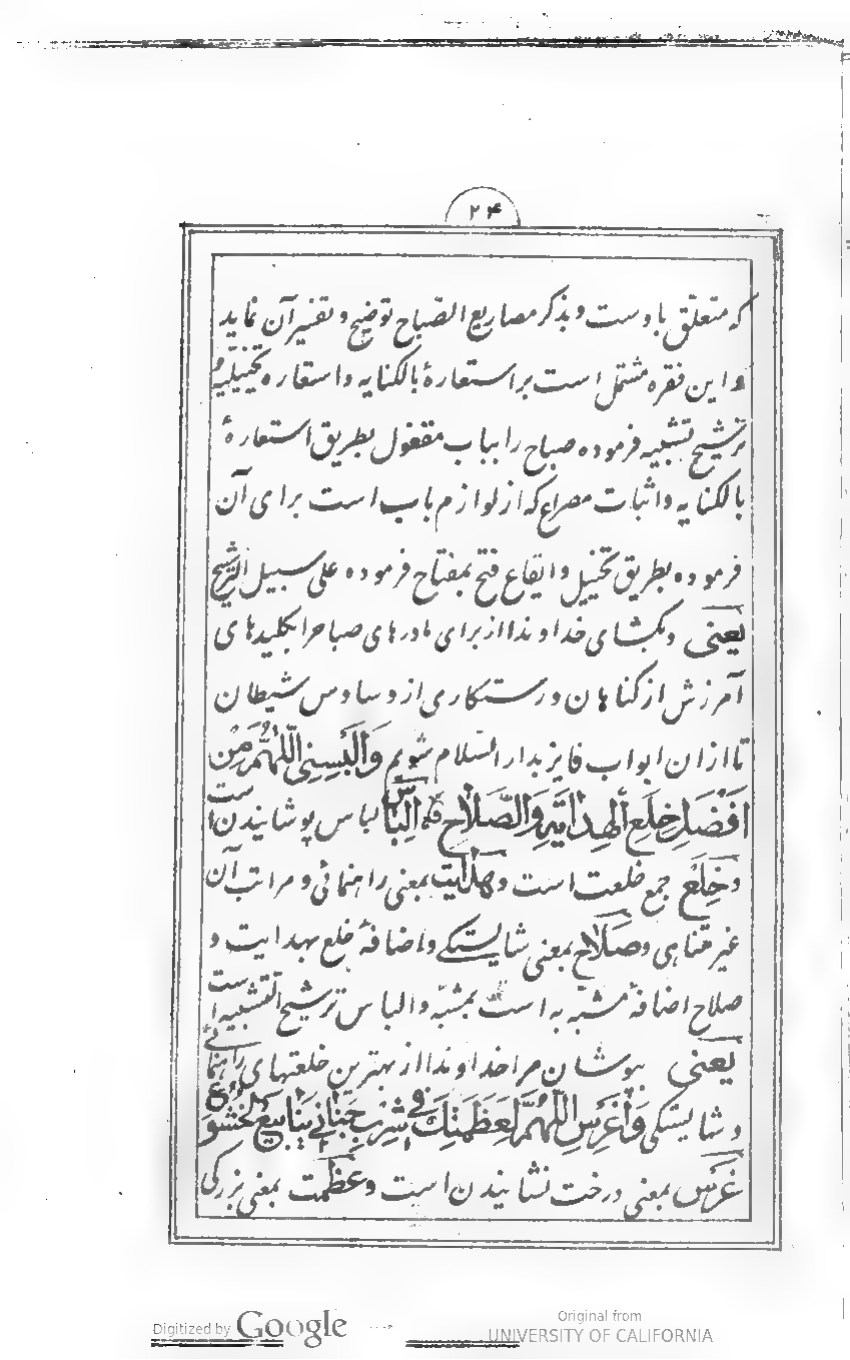 ۲۴
که متعلق باوست وبذکر مصاریع الصباح توضیح وتفسیر آن نماید
واین فقره مشتمل است براستعارهٔ بالکنایه واستعاره تخییلیه
ترشیح تشبیه فرموده صباح را بباب مقفول بطریق استعارهٔ
بالکنایه واثبات مصراع که از لوازم باب است برای آن
فرموده بطریق تخییل وایقاع فتح بمفتاح فرموده علی سبیل الترشیح
یعنی وبکشای خداوندا از برای ما درهای صباحرا بکلیدهای
آمرزش از کناهان ورستکاری از وساوس شیطان
تا ازان ابواب فایز بدار السلام شویم وَاَلْبِسْنِی اللّٰهُمَّ مِنْ
اَفْضَلِ خِلَعِ الْهِدَایَةِ وَالصَّلَاحِ اِلْبَاس لباس پوشانیدن است
وخِلَع جمع خلعت است وهدایت بمعنی راهنمائی و مراتب آن
غیر متناهی وصلاح بمعنی شایستکی واضافهٔ خلع بهدایت و
صلاح اضافهٔ مشبه به است بمشبه والباس ترشیح التشبیه است
یعنی بپوشان مرا خداوندا از بهترین خلعتهای راهنمائے
وشایستکی وَاَغْرِسِ اللّٰهُمَّ لِعَظَمَتِكَ فِی شِرْبِ جَنَانِی یَنَابِیعَ الْخُشُوعِ
غرس بمعنی درخت نشانیدن است وعظمت بمعنی بزرکی
Digitized by Google
Original from
UNIVERSITY OF CALIFORNIA